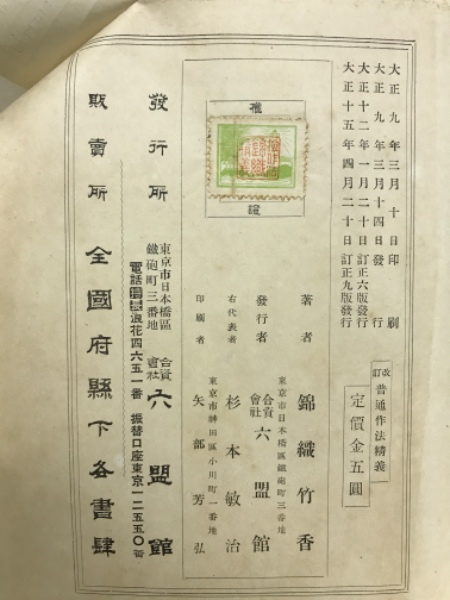 大正九年三月十日印刷
大正九年三月十四日發行
大正十二年一月二十日訂正六版發行
大正十五年四月二十日訂正九版發行
改訂 普通作法精義
定價金五圓
著者 錦織竹香
東京市日本橋區鐵砲町三番地
發行者 合資會社 六盟館
右代表者 杉本敏治
東京市神田區小川町一番地
印刷者 矢部芳弘
檢
證
發行所
東京市日本橋區
鐵砲町三番地
合資會社 六盟館
浪花四六五一番 振替口座東京一二五五〇番
販賣所 全國府縣下各書肆